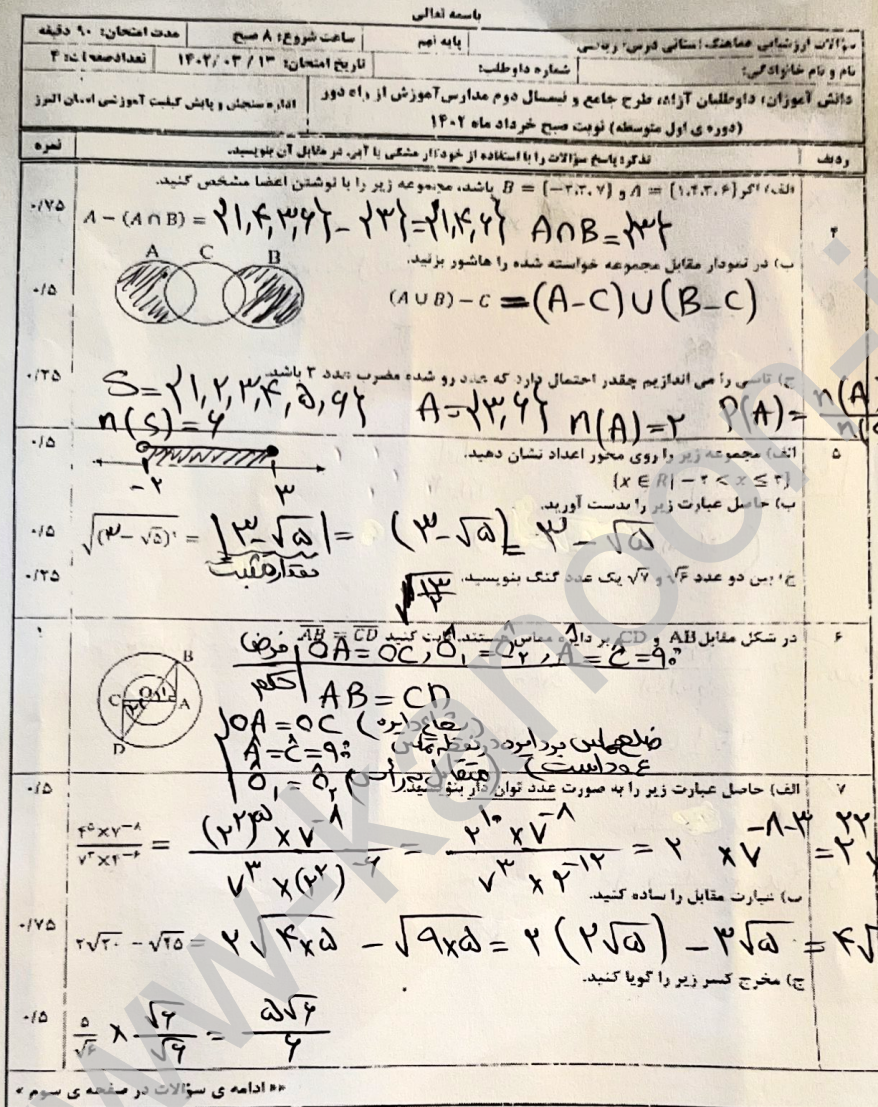 باسمه تعالی
سؤالات ارزشیابی هماهنگ استانی درس: ریاضی پایه نهم ساعت شروع: ۸ صبح مدت امتحان: ۹۰ دقیقه
نام و نام خانوادگی: شماره داوطلب: تاریخ امتحان: ۱۳ / ۰۳ / ۱۴۰۲ تعدادصفحات: ۴
دانش آموزان، داوطلبان آزاد، طرح جامع و نیمسال دوم مدارس آموزش از راه دور
(دوره ی اول متوسطه) نوبت صبح خرداد ماه ۱۴۰۲
اداره سنجش و پایش کیفیت آموزشی استان البرز
ردیف تذکر: پاسخ سؤالات را با استفاده از خودکار مشکی یا آبی، در مقابل آن بنویسید. نمره
۴ الف) اگر A = {۱،۴،۳،۶} و B = {−۲،۳،۷} باشد، مجموعه زیر را با نوشتن اعضا مشخص کنید.
۰/۷۵ A − (A ∩ B) = {۱,۴,۳,۶} − {۳} = {۱,۴,۶} A∩B = {۳}
ب) در نمودار مقابل مجموعه خواسته شده را هاشور بزنید.
A C B
۰/۵ (A ∪ B) − C = (A−C) ∪ (B−C)
۰/۲۵ ج) تاسی را می اندازیم چقدر احتمال دارد که عدد رو شده مضرب عدد ۳ باشد.
S = {۱,۲,۳,۴,۵,۶} A = {۳,۶} n(A) = ۲ P(A) = n(A
n(S) = ۶
۵ الف) مجموعه زیر را روی محور اعداد نشان دهید. ۰/۵
{x ∈ R| − ۲ < x ≤ ۳}
−۲ ۳
ب) حاصل عبارت زیر را بدست آورید.
۰/۵ √(۳ − √۵)² = |۳ − √۵| = (۳ − √۵) = ۳ − √۵
مقدار مثبت
ج) بین دو عدد √۶ و √۷ یک عدد گنگ بنویسید. ۰/۲۵
۶ در شکل مقابل AB و CD بر دایره مماس هستند. ثابت کنید AB = CD ۱
فرض OA = OC , Ô₁ = Ô₂ , Â = Ĉ = ۹۰°
حکم AB = CD
B O A C D
OA = OC (شعاع دایره)
Â = Ĉ = ۹۰° ضلع مماس بر دایره در نقطه تماس عمود است)
Ô₁ = Ô₂ (متقابل به رأس)
۷ الف) حاصل عبارت زیر را به صورت عدد توان دار بنویسید. ۰/۵
۴⁵ × ۷⁻⁸ / ۷³ × ۴⁻⁶ = (۲²)⁵ × ۷⁻⁸ / ۷³ × (۲²)⁻⁶ = ۲¹⁰ × ۷⁻⁸ / ۷³ × ۲⁻¹² = ۲ × ۷⁻⁸⁻³ = ۲²² ×
ب) عبارت مقابل را ساده کنید.
۰/۷۵ ۲√۲۰ − √۴۵ = ۲√۴×۵ − √۹×۵ = ۲(۲√۵) − ۳√۵ = ۴√
ج) مخرج کسر زیر را گویا کنید.
۰/۵ ۵/√۶ × √۶/√۶ = ۵√۶/۶
** ادامه ی سؤالات در صفحه ی سوم **
www.kanoon.i